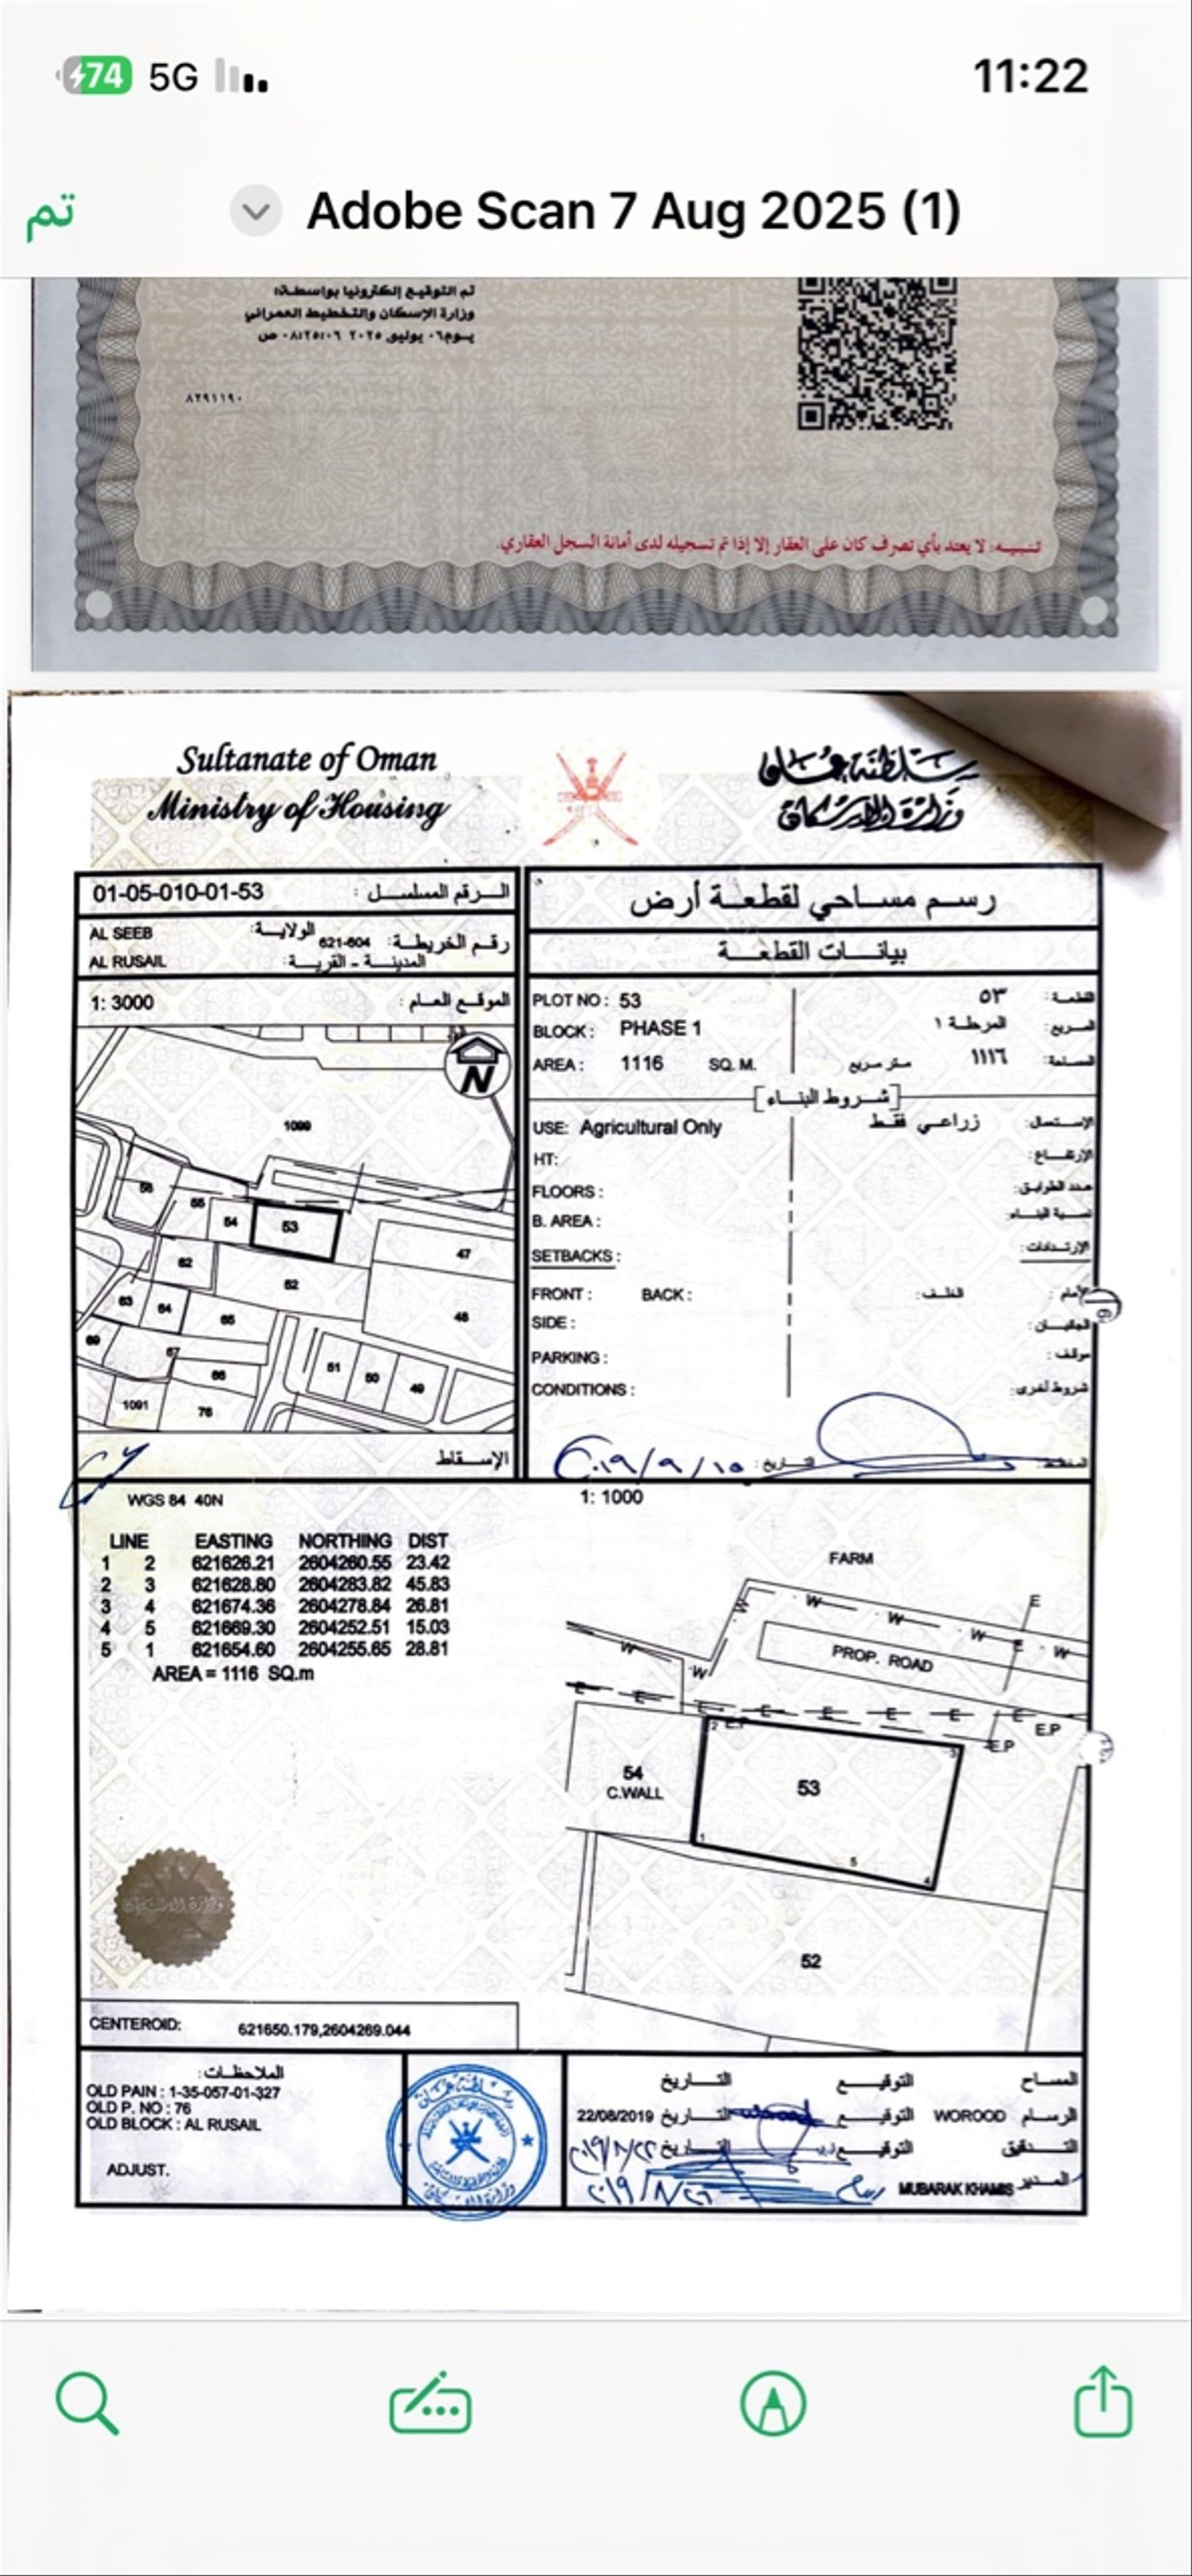 74 5G 11:22
تم
Adobe Scan 7 Aug 2025 (1)
تم التوقيع إلكترونيا بواسطة:
وزارة الإسكان والتخطيط العمراني
٨٢٩١١٩٠
تنبيه: لا يعتد بأي تصرف كان على العقار إلا إذا تم تسجيله لدى أمانة السجل العقاري.
Sultanate of Oman
Ministry of Housing
سلطنة عمان
وزارة الإسكان
01-05-010-01-53 الرقم المسلسل :
AL SEEB الولاية:
رقم الخريطة: 621-604
AL RUSAIL المدينة - القرية:
1: 3000 الموقع العام :
N
1099
56
55
54
53
47
62
52
63
64
65
48
69
67
66
51
50
49
1091
76
الإسقاط
رسم مساحي لقطعة أرض
بيانات القطعة
PLOT NO : 53 القطعة: ٥٣
BLOCK : PHASE 1 المربع: المرحلة ١
AREA : 1116 SQ. M. المساحة: ١١١٦ متر مربع
[شروط البناء]
USE: Agricultural Only الإستعمال: زراعي فقط
HT: الإرتفاع:
FLOORS : عدد الطوابق:
B. AREA : نسبة البناء:
SETBACKS : الإرتدادات:
FRONT : BACK : الأمام : الخلف:
SIDE : الجانبان :
PARKING : موقف :
CONDITIONS : شروط أخرى:
التاريخ : ٢٠١٩/٩/١٥
WGS 84 40N
1: 1000
LINE EASTING NORTHING DIST
1 2 621626.21 2604260.55 23.42
2 3 621628.80 2604283.82 45.83
3 4 621674.36 2604278.84 26.81
4 5 621669.30 2604252.51 15.03
5 1 621654.60 2604255.65 28.81
AREA = 1116 SQ.m
FARM
W W W W W W W
E
PROP. ROAD
E E E E E E E E
E.P E.P E.P
54
C.WALL
53
1 2 3 4 5
52
CENTEROID: 621650.179,2604269.044
الملاحظات:
OLD PAIN : 1-35-057-01-327
OLD P. NO : 76
OLD BLOCK : AL RUSAIL
ADJUST.
المساح التوقيع التاريخ
الرسام WOROOD التوقيع التاريخ 22/08/2019
التدقيق التوقيع التاريخ
المدير MUBARAK KHAMIS